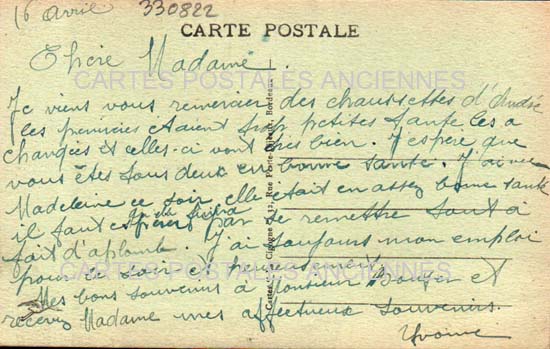 16 Avril 330822
CARTE POSTALE
Chère Madame.
CARTES POSTALES ANCIENNES
Je viens vous remercier des chaussettes d'André
les premières étaient trop petites les a
changées et celles-ci vont très bien. J'espère que
vous êtes tous deux en bonne santé. J'ai vu
Madeleine ce soir elle était en assez bonne santé
il faut espérer
par se remettre tout à
fait d'aplomb. J'ai toujours mon emploi
pour
CARTES POSTALES ANCIENNES
Mes bons souvenirs à Monsieur et
recevez Madame mes affectueux souvenirs.
Yvonne
Rue Bordeaux